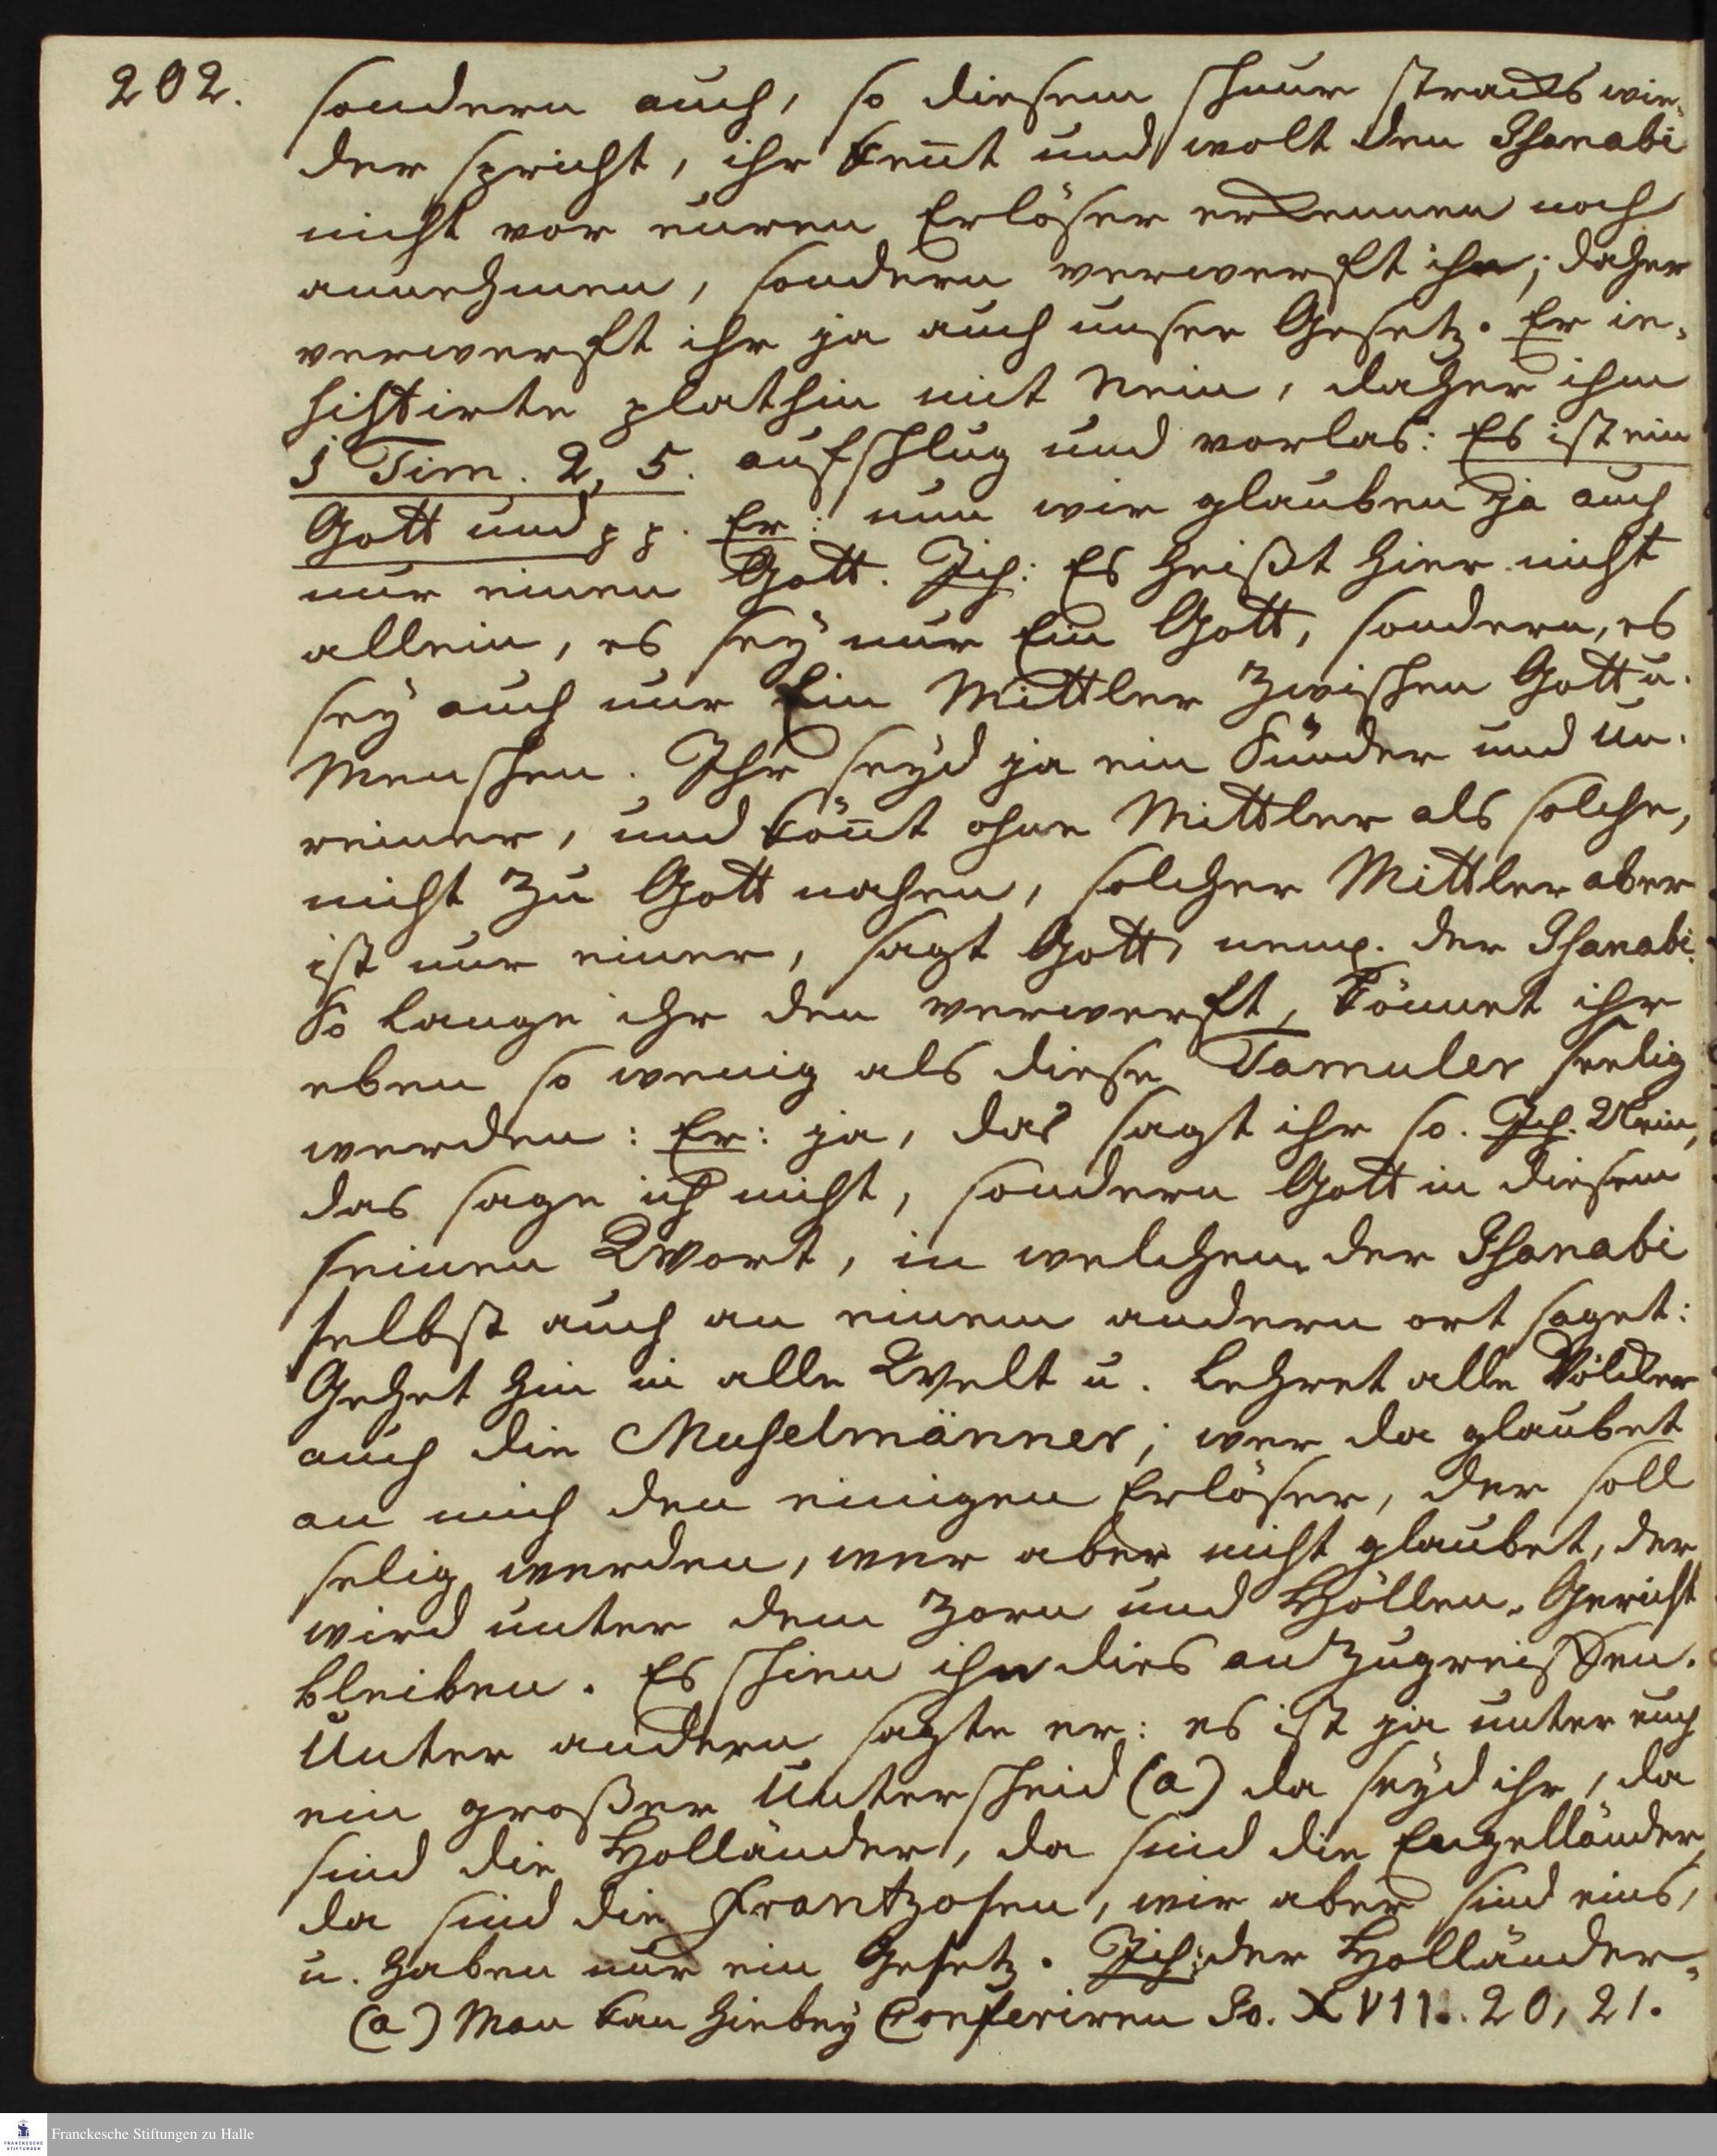 202.
sondern auch, so diesem schnur stracks wie-
der spricht, ihr kent und wolt den Isanabi
nicht vor euren Erlöser erkennen noch
annehmen, sondern verwerfft ihn; daher
verwerfft ihr ja auch unser Gesetz. Er in-
sistirte plathin mit Nein, daher ihm
1 Tim. 2, 5. aufschlug und vorlas: Es ist ein
Gott und pp. Er: nun wir glauben ja auch
nur einen Gott. Ich: Es heißt hier nicht
allein, es sey nur Ein Gott, sondern, es
sey auch nur Ein Mittler zwischen Gott u.
Menschen. Ihr seyd ja ein Sünder und un-
reiner, und könt ohne Mittler als solche,
nicht zu Gott nahen, solcher Mittler aber
ist nur einer, sagt Gott, neml. der Isanabi.
So lange ihr den verwerfft, könnet ihr
eben so wenig als diese Tamuler seelig
werden: Er: ja, das sagt ihr so. Ich. Nein,
das sage ich nicht, sondern Gott in diesem
seinen Wort, in welchem der Isanabi
selbst auch an einem andern ort saget:
Gehet hin in alle Welt u. lehret alle Völcker
auch die Muselmänner; wer da glaubet
an mich den einigen Erlöser, der soll
selig werden, wer aber nicht glaubet, der
wird unter dem Zorn und Höllen-Gericht
bleiben. Es schien ihn dies anzugreiffen.
Unter andern sagte er: es ist ja unter euch
ein großer Unterscheid (a) da seyd ihr, da
sind die Holländer, da sind die Engelländer,
da sind die Frantzosen, wir aber sind eins,
u. haben nur ein Gesetz. Ich: der Holländer-
(a) Man kan hiebey Conferiren Jo. XVII. 20, 21.
Franckesche Stiftungen zu Halle